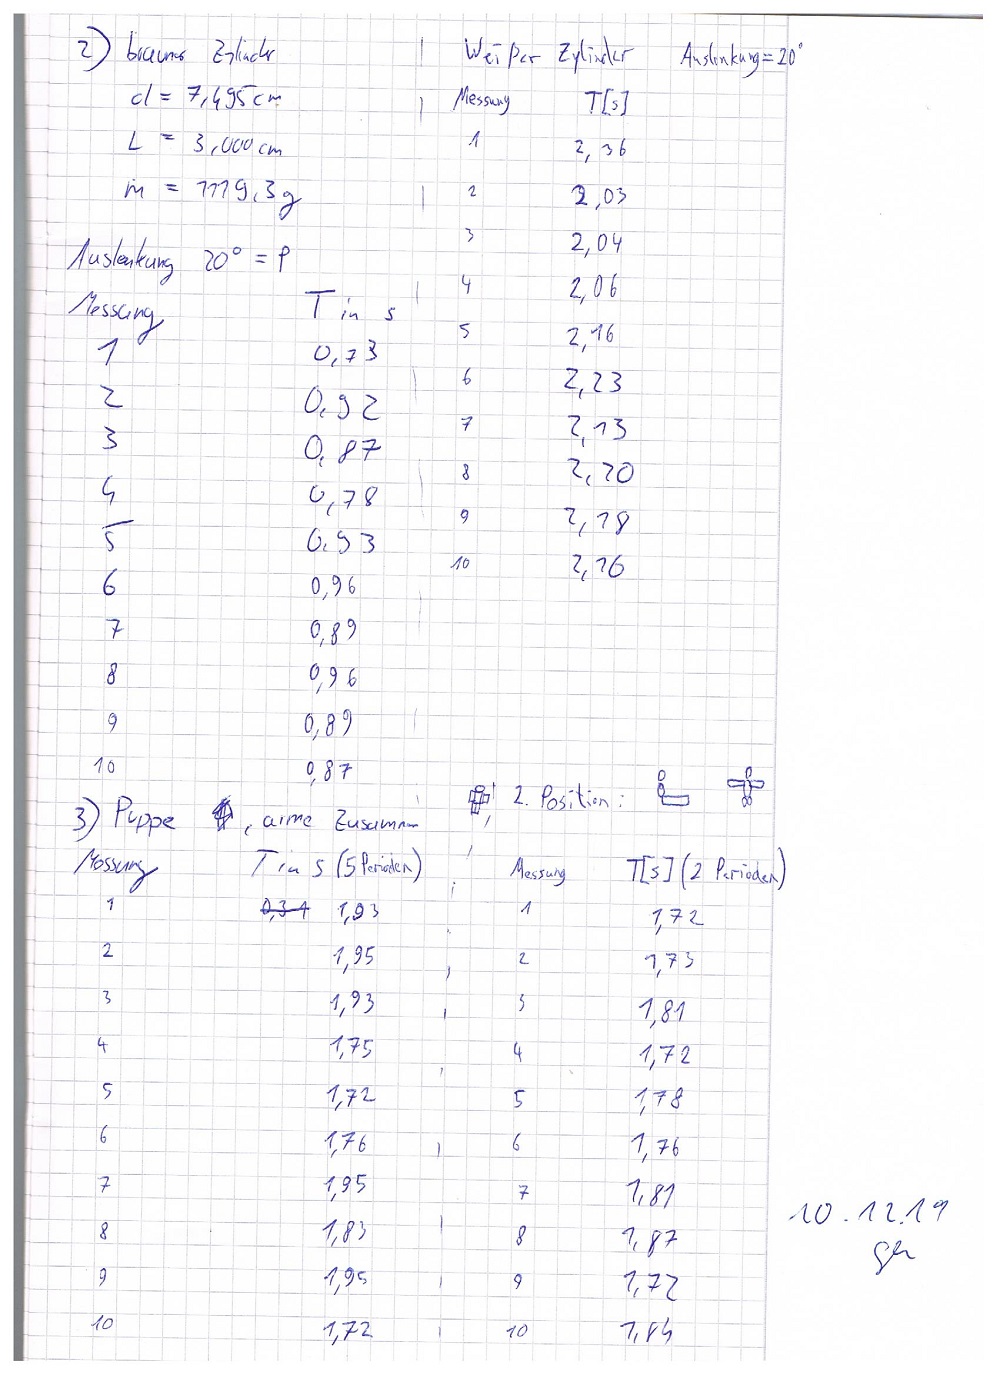 2) brauner Zylinder
d = 7,495 cm
L = 3,000 cm
m = 1119,3 g
Auslenkung 20° = φ
Messung T in s
1 0,73
2 0,92
3 0,87
4 0,78
5 0,93
6 0,96
7 0,89
8 0,96
9 0,89
10 0,87
Weißer Zylinder Auslenkung = 20°
Messung T[s]
1 2,36
2 2,03
3 2,04
4 2,06
5 2,16
6 2,23
7 2,13
8 2,20
9 2,18
10 2,16
3) Puppe , arme Zusammn
Messung T in s (5 Perioden)
1 0,34 1,93
2 1,95
3 1,93
4 1,75
5 1,72
6 1,76
7 1,95
8 1,83
9 1,95
10 1,72
2. Position:
Messung T[s] (2 Perioden)
1 1,72
2 1,73
3 1,81
4 1,72
5 1,78
6 1,76
7 1,81
8 1,87
9 1,72
10
10.12.19